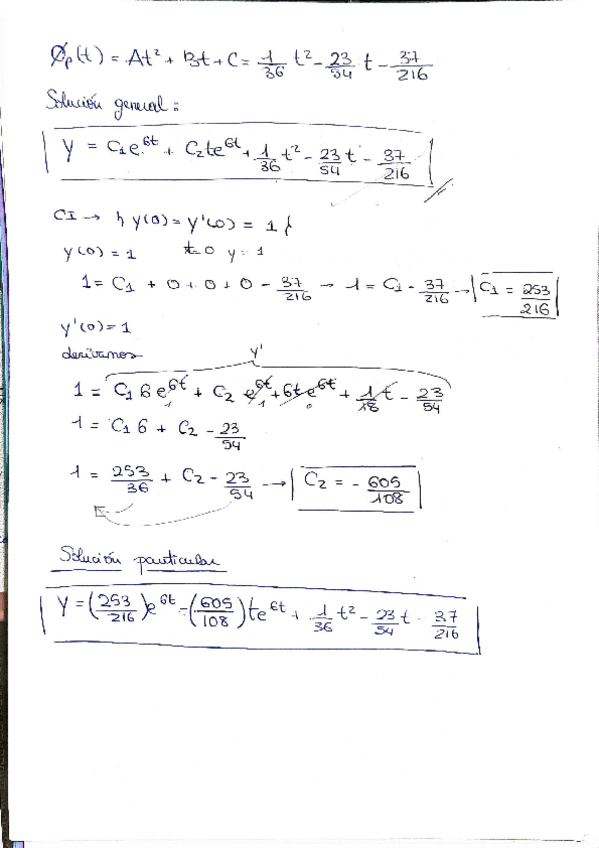 Øp(t) = At² + Bt + C = 1/36 t² - 23/54 t - 37/216
Solución general:
Y = C₁e^6t + C₂te^6t + 1/36 t² - 23/54 t - 37/216
CI → { y(0) = y'(0) = 1 }
y(0) = 1 t=0 y=1
1 = C₁ + 0 + 0 + 0 - 37/216 → 1 = C₁ - 37/216 → C₁ = 253/216
y'(0) = 1
derivamos y'
1 = C₁ 6 e^6t + C₂ e^6t + 6t e^6t + 1/18 t - 23/54
1 = C₁ 6 + C₂ - 23/54
1 = 253/36 + C₂ - 23/54 → C₂ = - 605/108
Solución particular
Y = (253/216)e^6t - (605/108)te^6t + 1/36 t² - 23/54 t - 37/216